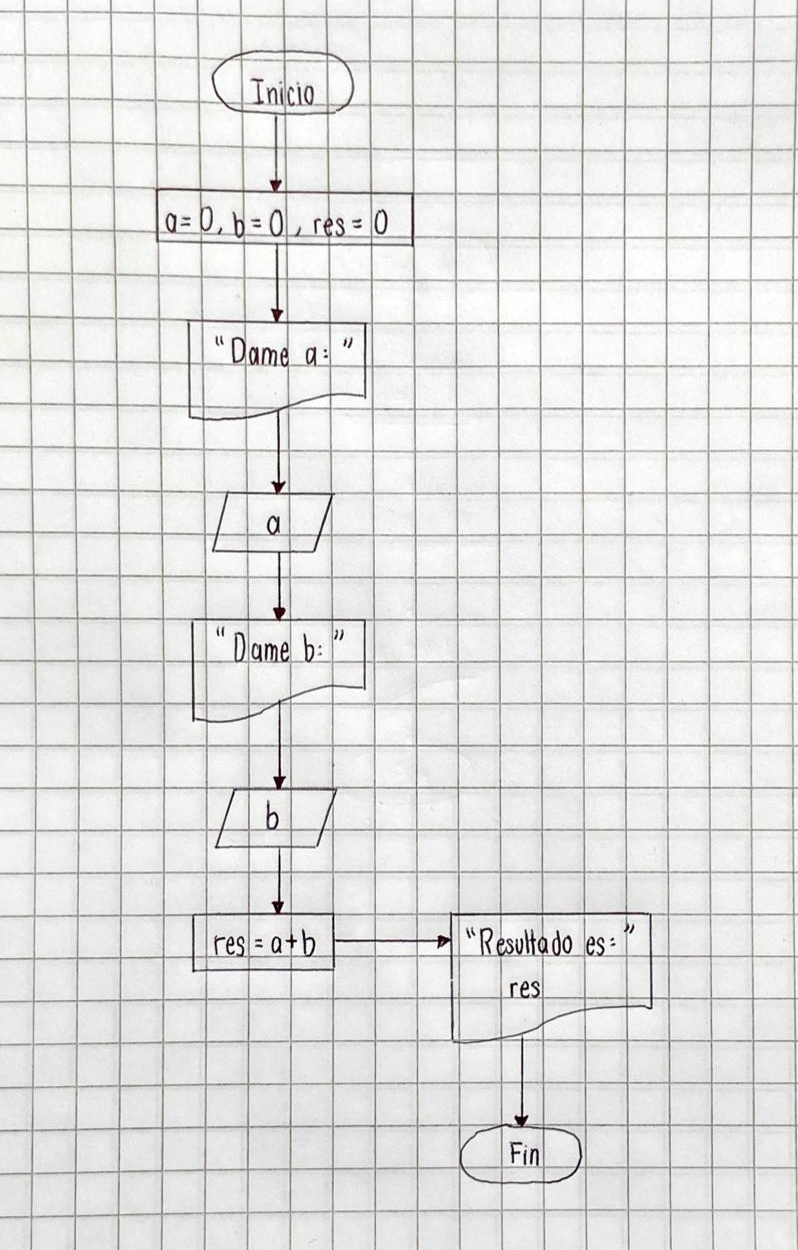 Inicio
a=0, b=0, res=0
"Dame a:"
a
"Dame b:"
b
res=a+b
"Resultado es:"
res
Fin